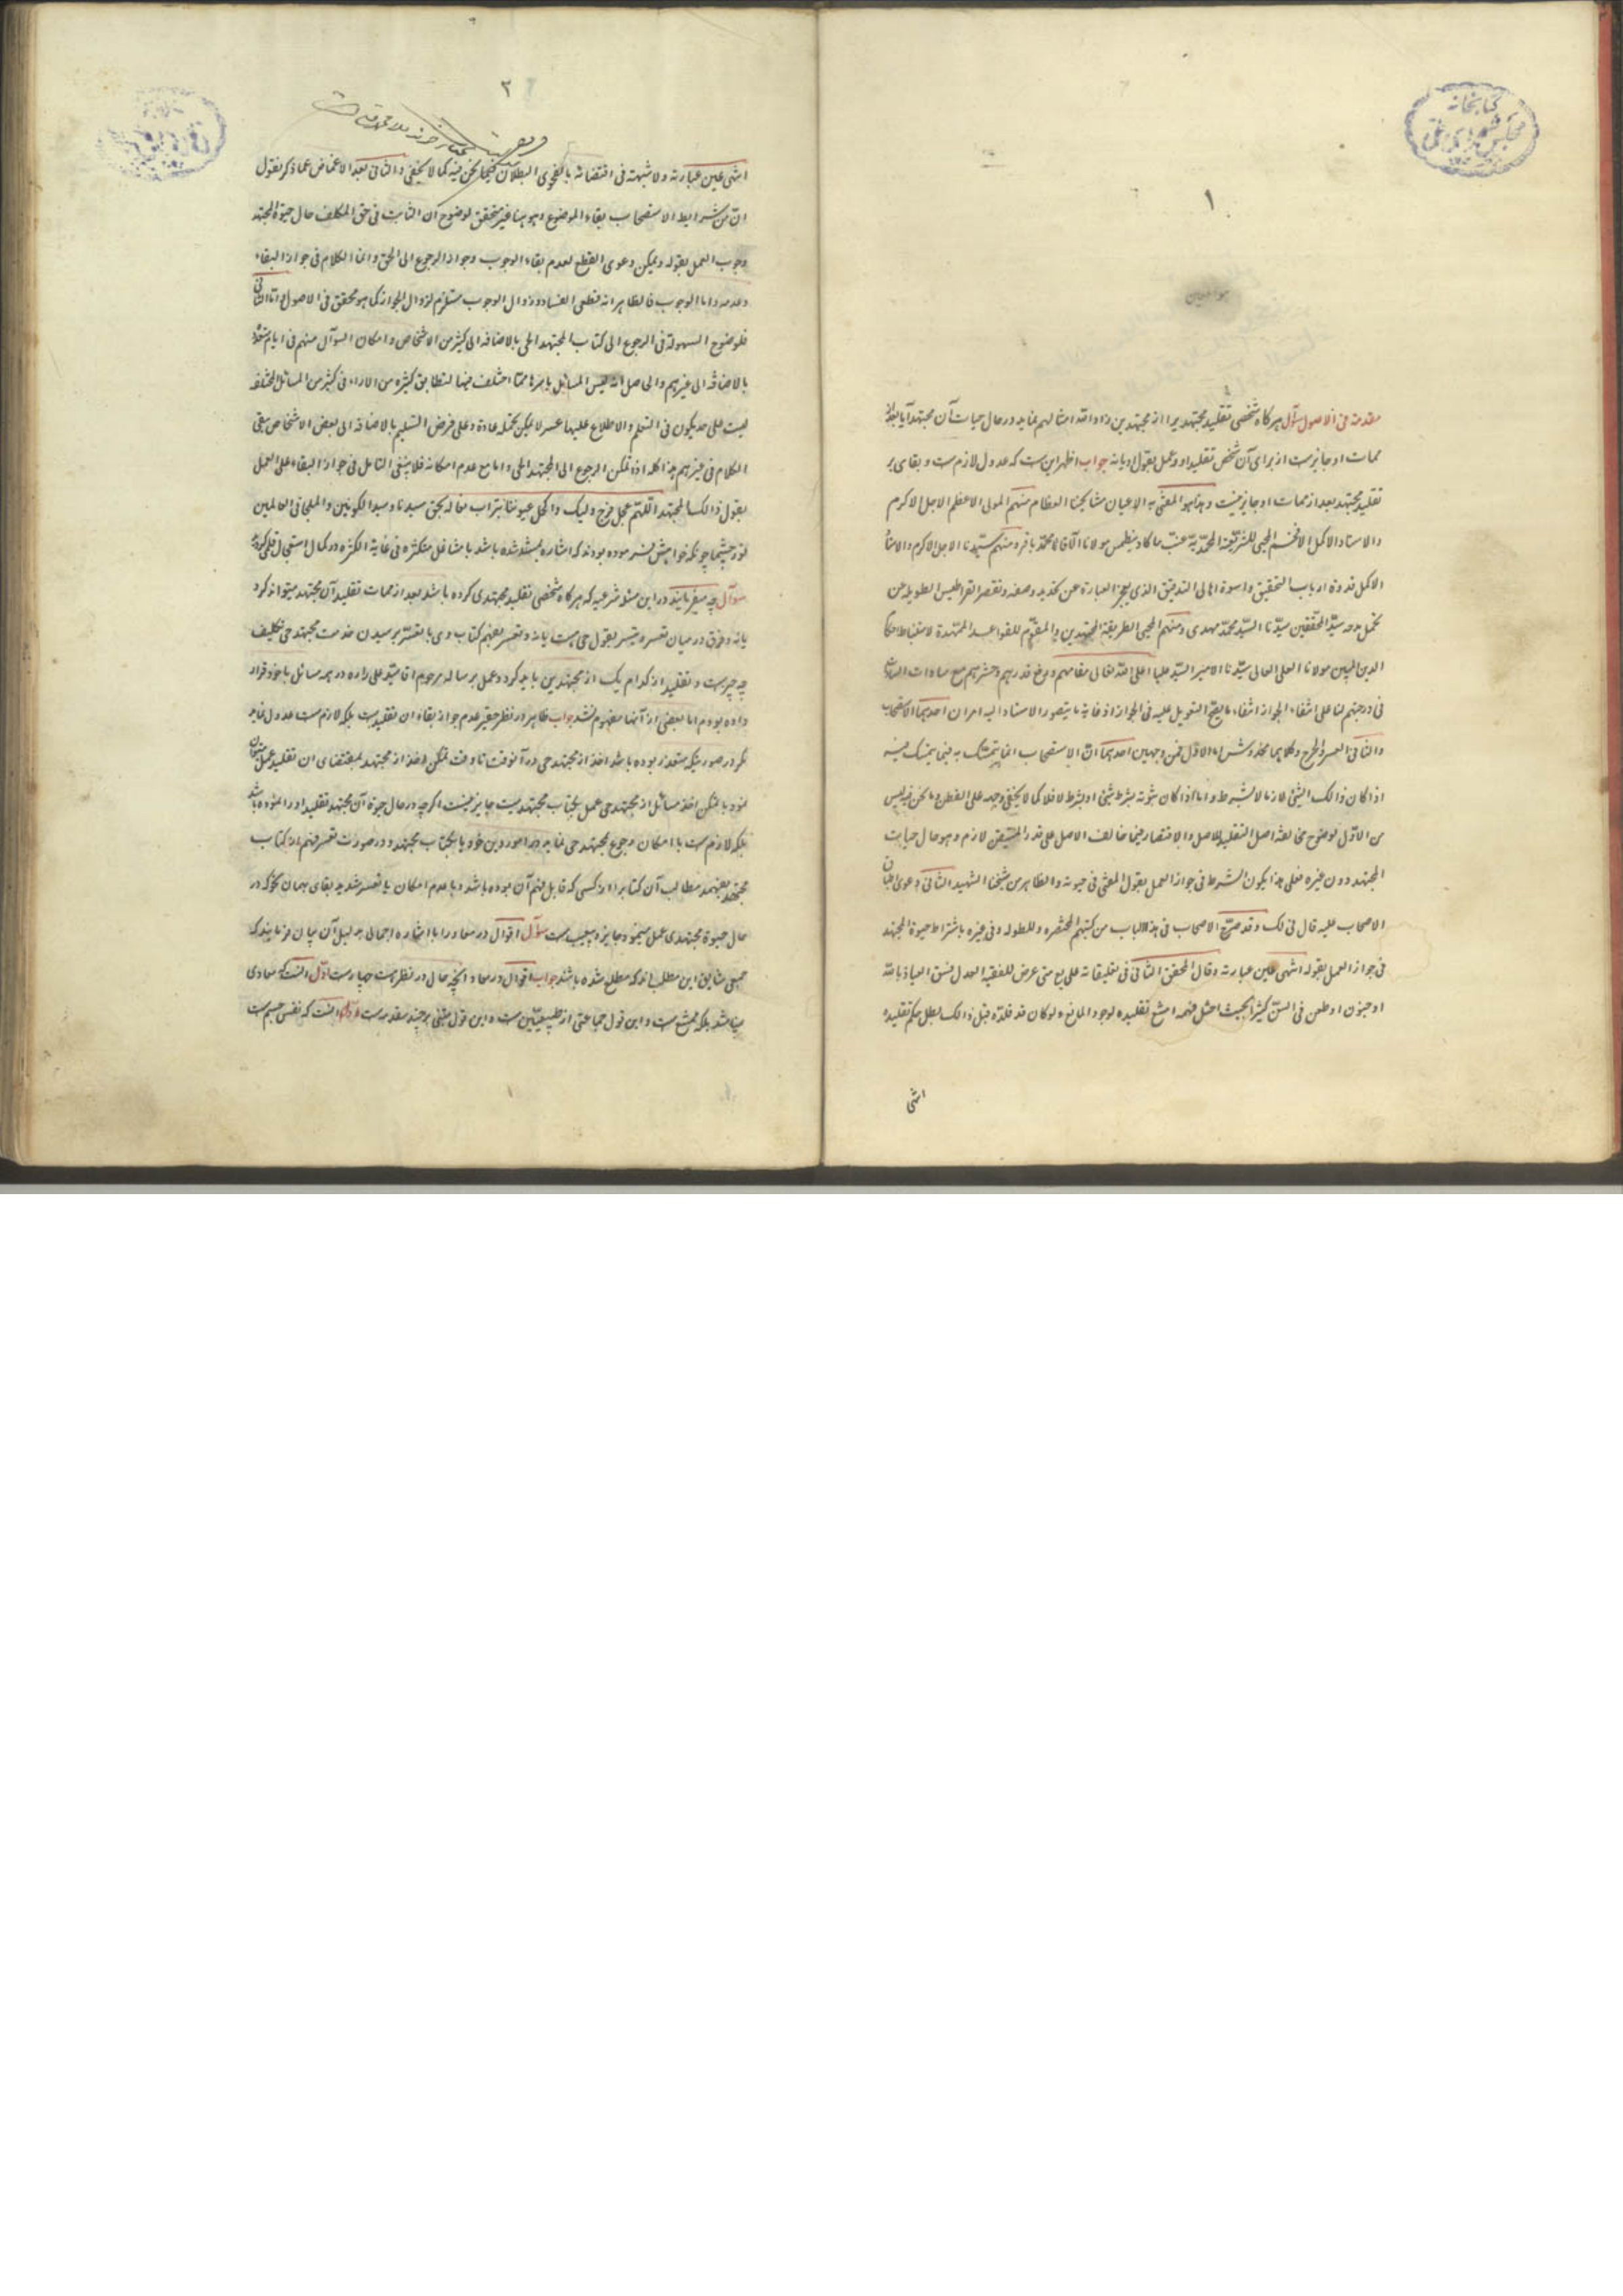 کتابخانه
مجلس شورای ملی
۱
هو المعین
مقدمة فی الاصول سؤال هرگاه شخصی تقلید مجتهدیرا از مجتهدین زاد الله امثالهم نماید در حال حیات آن مجتهد آیا بعد از
ممات او جایز است از برای آن شخص تقلید او و عمل بقول او یا نه جواب اظهر این است که عدول لازم است و بقای بر
تقلید مجتهد بعد از ممات او جایز نیست و هذا هو المفتی به الاعیان مشایخنا العظام منهم المولی الاعظم الاجل الاکرم
والاستاد الاکمل الافخم المحیی للشریعة المحمدیة غب ما کاد ینطمس مولانا الآقا محمد باقر و منهم سیدنا الاجل الاکرم والاستاد
الاکمل قدوة ارباب التحقیق واسوة اهالی التدقیق الذی یعجز العبارة عن تحدید وصفه وتقصر القراطیس الطویلة عن
تحمل مدحه سید المحققین سیدنا السید محمد مهدی ومنهم المحیی الطریقة المجتهدین والمقوم للقواعد الممهدة لاستنباط احکام
الدین المبین مولانا العلی العالی سیدنا الامیر السید علیا اعلی الله تعالی مقامهم ورفع قدرهم وحشرهم مع ساداته السادات
فی درجتهم لنا علی انتفاء الجواز انتفاء ما یصح التعویل علیه فی الجواز اذ غایة ما یتصور الاستناد الیه امران احدهما الاستصحاب
والثانی العسر والحرج وکلاهما مخدوش اما الاول فمن وجهین احدهما ان الاستصحاب انما یتمسک به فیما یتمسک فیه
اذا کان ذالک الشیء لازما لا بشرط واما اذا کان ثبوته بشرط شیء او بشرط لا فلا کما لا یخفی وجهه علی الفطن وما نحن فیه لیس
من الاول لوضوح مخالفة اصل التقلید للاصل والاقتصار فیما خالف الاصل علی قدر المتیقن لازم وهو حال حیات
المجتهد دون غیره فعلی هذا یکون الشرط فی جواز العمل بقول المفتی فی حیوته والظاهر من شیخنا الشهید الثانی دعوی اطباق
الاصحاب علیه قال فی لک وقد صرح الاصحاب فی هذا الباب من کتبهم المختصره والمطوله وفی غیره باشتراط حیوة المجتهد
فی جواز العمل بقوله انتهی عین عبارته وقال المحقق الثانی فی تعلیقاته علی یع متی عرض للفقیه العدل فسق العیاذ بالله
او جنون او طعن فی السن کثیرا بحیث اختل فهمه امتنع تقلیده لوجود المانع ولو کان قد قلده قبل ذالک بطل حکم تقلیده
انتهی
۲
انتهی عین عبارته ولا شبهة فی اقتضائه بالفحوی البطلان فیما نحن فیه کما لا یخفی والثانی بعد الاغماض عما ذکر نقول
ان من شرایط الاستصحاب بقاء الموضوع وهو هنا غیر متحقق لوضوح ان الثابت فی حق المکلف حال حیوة المجتهد
وجوب العمل بقوله ویمکن دعوی القطع لعدم بقاء الوجوب وجواز الرجوع الی الحی وانما الکلام فی جواز البقاء
وعدمه واما الوجوب فالظاهر انه قطعی الفساد وزوال الوجوب مستلزم لزوال الجواز کما هو محقق فی الاصول واما الثانی
فلوضوح السهولة فی الرجوع الی کتاب المجتهد الحی بالاضافه الی کثیر من الاشخاص وامکان السؤال منهم فی ایام متعددة
بالاضافه الی غیرهم والحاصل انه لیس المسائل باسرها مما اختلف فیها لتطابق کثیره من الاراء فی کثیر من المسائل المختلفه
لیست علی حد یکون فی التعلم والاطلاع علیها عسر لا یمکن تحمله عادة وعلی فرض التسلیم بالاضافه الی بعض الاشخاص یبقی
الکلام فی غیرهم هذا کله اذا تمکن الرجوع الی المجتهد الحی واما مع عدم امکانه فلا ینبغی التامل فی جواز البقاء علی العمل
بقول ذالک المجتهد اللهم عجل فرج ولیک واکحل عیوننا بتراب نعاله بحق سیدنا وسید الکونین والملجأ فی العالمین
نور چشما چونکه خواهش فرموده بودند که اشاره بسند شده باشد با مشاغل متکثره فی غایة الکثره در کمال استعجال قلمی گردید
سؤال چه میفرمایند در این مسئله شرعیه که هرگاه شخصی تقلید مجتهدی کرده باشد بعد از ممات تقلید آن مجتهد میتواند کرد
یا نه و فرق در میان تعسر و تیسر بقول حی هست یا نه و تعسر بفهم کتاب وی یا بتعسر برسیدن خدمت مجتهد حی تکلیف
چه چیز است و تقلید از کدام یک از مجتهدین باید کرد و عمل بر ساله مرحوم اقا سید علی را ده در همه مسائل با خود قرار
داده بودم اما بعضی از آنها مفهوم نشد جواب ظاهر در نظر حقیر عدم جواز بقاء ان تقلید است بلکه لازم است عدول نماید
مگر در صورتیکه متعذر بوده باشد اخذ از مجتهد حی در آنوقت تا وقت تمکن اخذ از مجتهد بمقتضای ان تقلید عمل میتوان
نمود با تمکن اخذ مسائل از مجتهد حی عمل بکتاب مجتهد میت جایز نیست اگرچه در حال حیوة آن مجتهد تقلید او را نموده باشد
بلکه لازم است با امکان رجوع بمجتهد حی نماید در امور دین خود یا بکتاب مجتهد و در صورت تعسر فهم از کتاب
مجتهد بفهمد مطالب آن کتابرا از کسی که قابل فهم آن بوده باشد و با عدم امکان یا تعسر شدید بقای بهمان نحو که در
حال حیوة مجتهدی عمل مینمود جایز و بیعیب است سؤال اقوال در معاد را با اشاره اجمالی به دلیل آن بیان فرمایند که
جمعی شایق این مطلب اند که مطلع شده باشند جواب اقوال در معاد آنچه حال در نظر است چهار است اول آنست که معادی
نمیباشد بلکه ممتنع است و این قول جماعتی از طبیعیین است و این قول مبتنی بر چند مقدمه است اول آنست که نفس جسم است